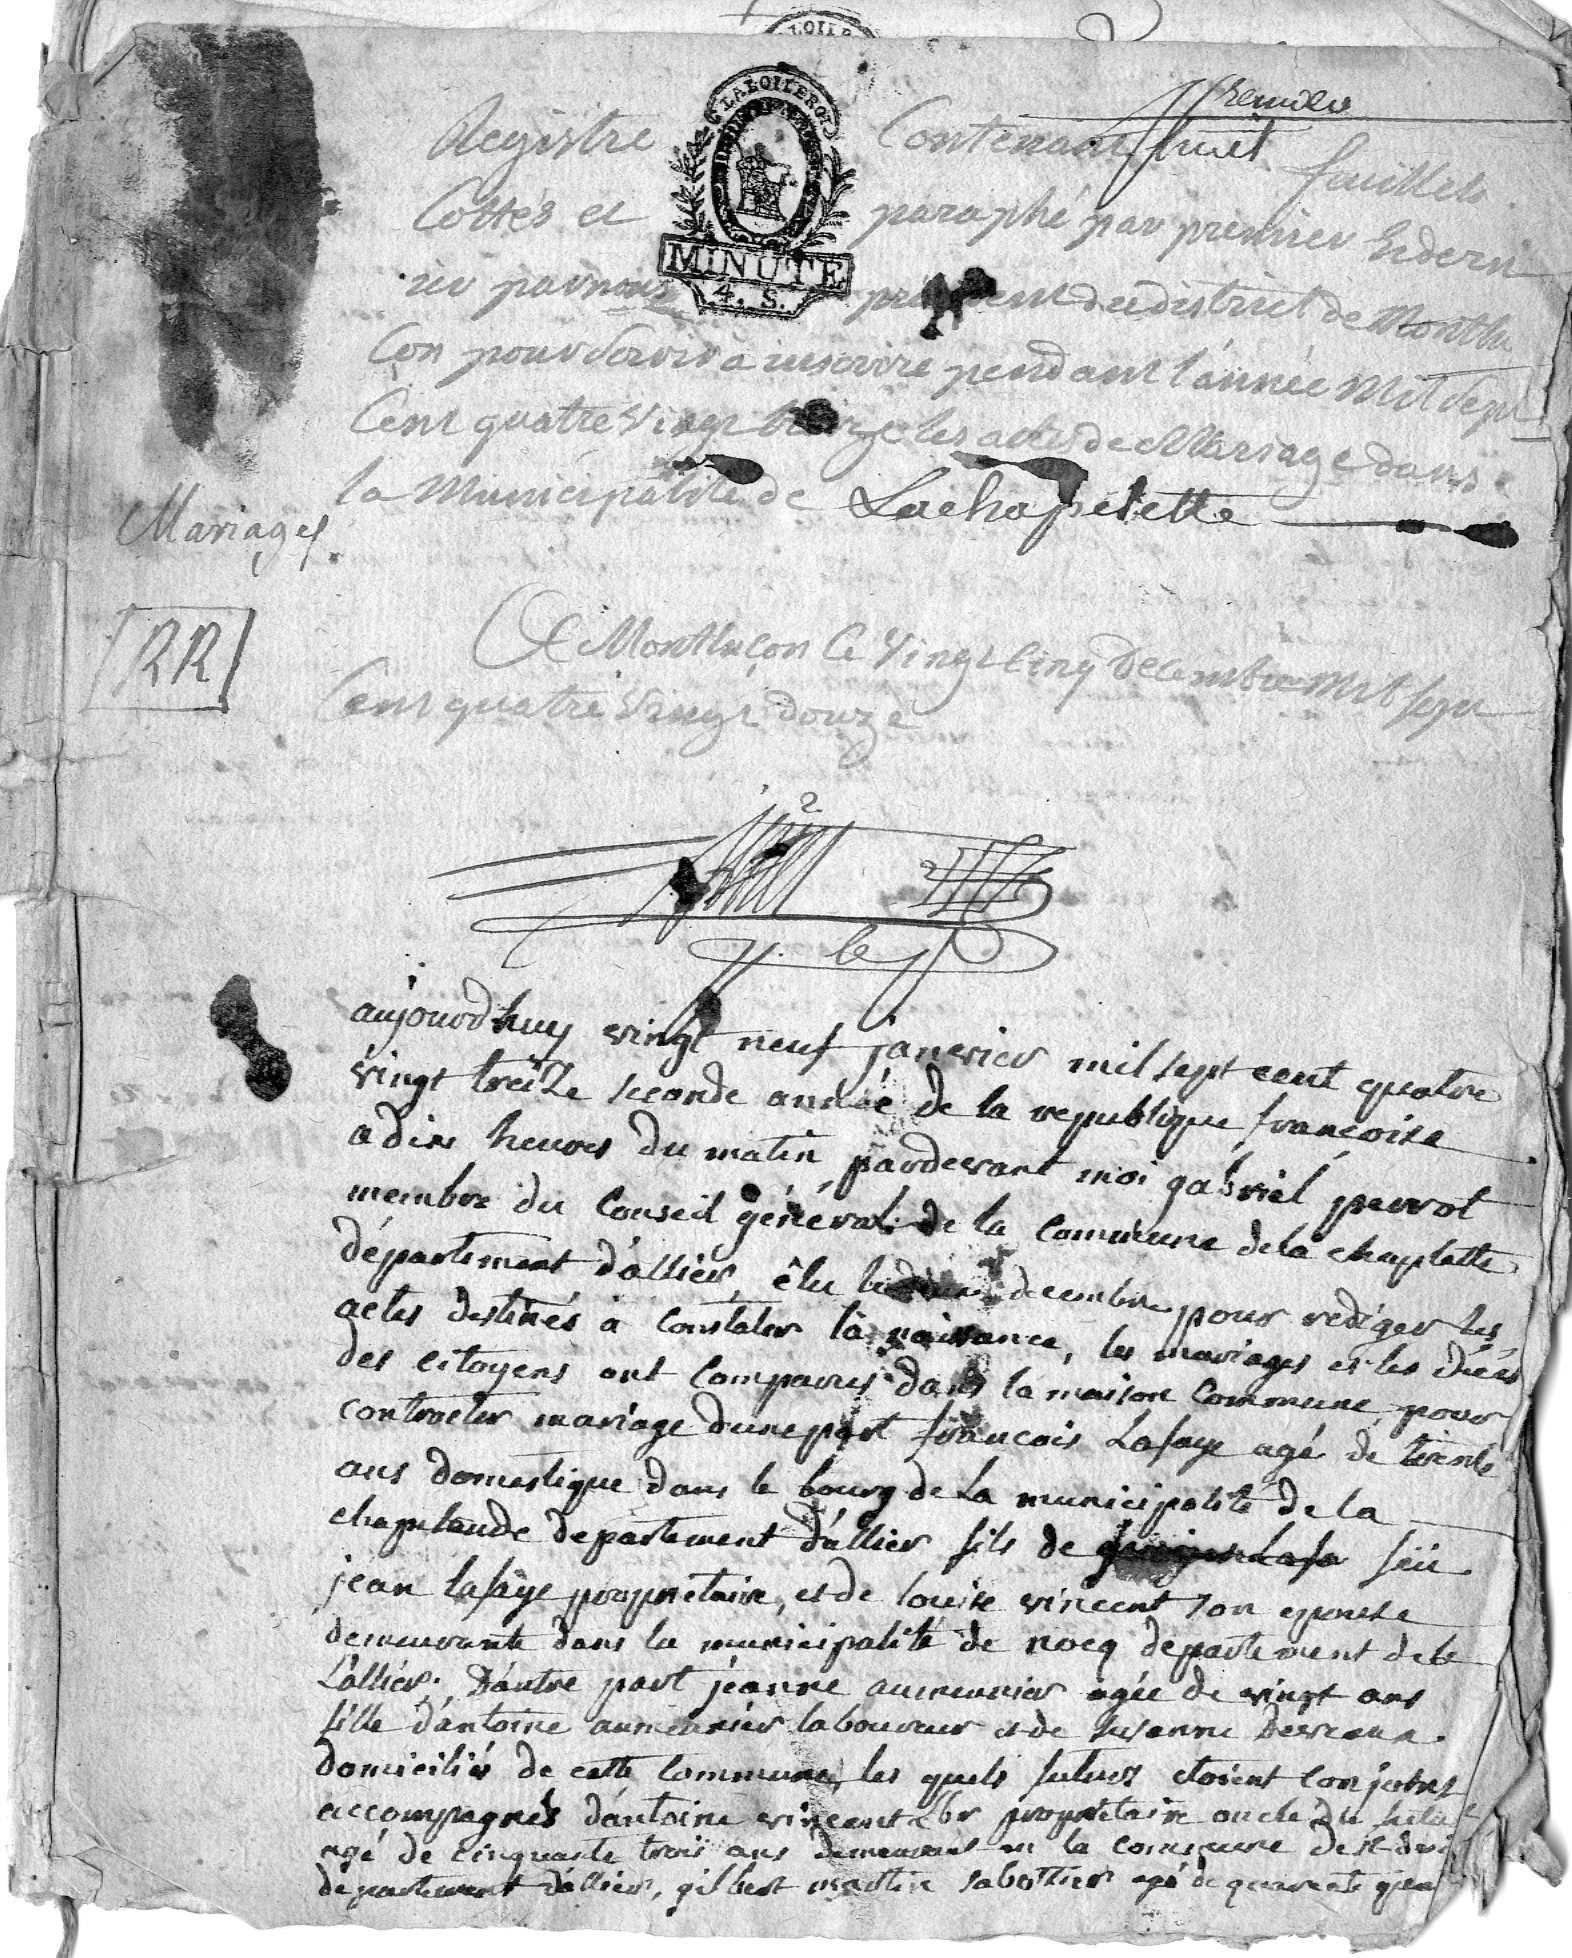 LA LOI LE ROI
MINUTE
4. S.
premier
Registre Contenant huit feuillets
Cottés et paraphé par premier & dern
ier par nous président du district de Montlu
çon pour servir a inscrire pendant l'année Mil sept
Cent quatre vingt treize les actes de Mariage dans
la Municipalité de Lachapelette
Mariages.
RR
A Montluçon Ce vingt cinq Decembre Mil sept
Cent quatre vingt douze
aujourdhuy vingt neuf janvier mil sept cent quatre
vingt treize seconde année de la republique françoise
a dix heures du matin pardevant moi gabriel perrot
membre du Conseil général de la commune de la chaplette
département d'allier, élu le decembre pour rediger les
actes destinés à constater la naissance, les mariages et les décés
des citoyens ont comparus dans la maison commune, pour
contracter mariage d'une part francois Lafaye agé de trente
ans domestique dans le bourg de La municipalité de la
chapelaude departement d'allier fils de feü
jean lafaye propriétaire, et de louise vincent son epouse
demeurante dans la municipalité de nocq departement de
L'allier. D'autre part jeanne aumeunier agée de vingt ans
fille d'antoine aumeunier laboureur et de susanne
domiciliés de cette commune, les quels futurs etoient conjoints
accompagnés d'antoine vincent propriétaire oncle du
agé de cinquante trois ans demeurant en la commune de st
departement d'allier, gilbert martin sabottier agé de quarante